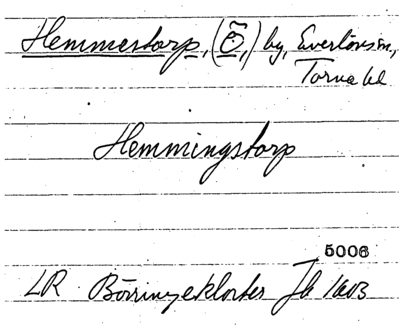 Hemmestorp, (Ö,) by, Everlövs sn,
Torna hd
Hemmingstorp
5006
LR Börringekloster Jb 1603